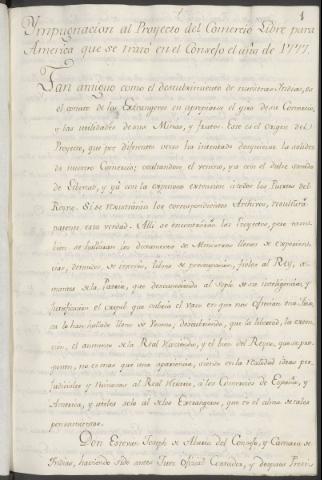 1
Ympugnacion al Proyecto del Comercio Libre para
America que se trató en el Consejo el año de 1777.
Tan antiguo como el descubrimiento de nuestras Indias, es
el conato de los Extrangeros en apropiarse el giro de su Comercio,
y las utilidades de sus Minas, y frutos. Este es el origen del
Proyecto, que por diferentes veces ha intentado desquiciar la solidez
de nuestro Comercio; ocultandose el veneno, ya con el dulce sonido
de Libertad, y ya con la expresion extension à todos los Puertos del
Reyno. Si se registrarán los correspondientes Archivos, resultará
patente esta verdad. Alli se encontrarán los Proyectos, pero tambien
se hallarán los documentos de Ministros llenos de experiencias,
desnudos de interes, libres de preocupacion, fieles al REY, amantes
de la Patria, que descorriendo el velo de sus inteligencias, y
el que cubria el vaso en que nos ofrecian
la han hallado lleno de Veneno, descubriendo, que la libertad, la extension,
el aumento de la Real Hacienda, y el bien del Reyno, que se proponen,
no es mas que una apariencia, siendo en la realidad ideas perjudiciales
y ruinosas al Real Herario, a los Comercios de España, y
America, y utiles solo al de los Extrangeros, que es el alma de tales
pensamientos.
Don Estevan Joseph de Abaria del Consejo, y Camara de
Indias, haviendo sido antes Juez Oficial Contador, y despues Presi-